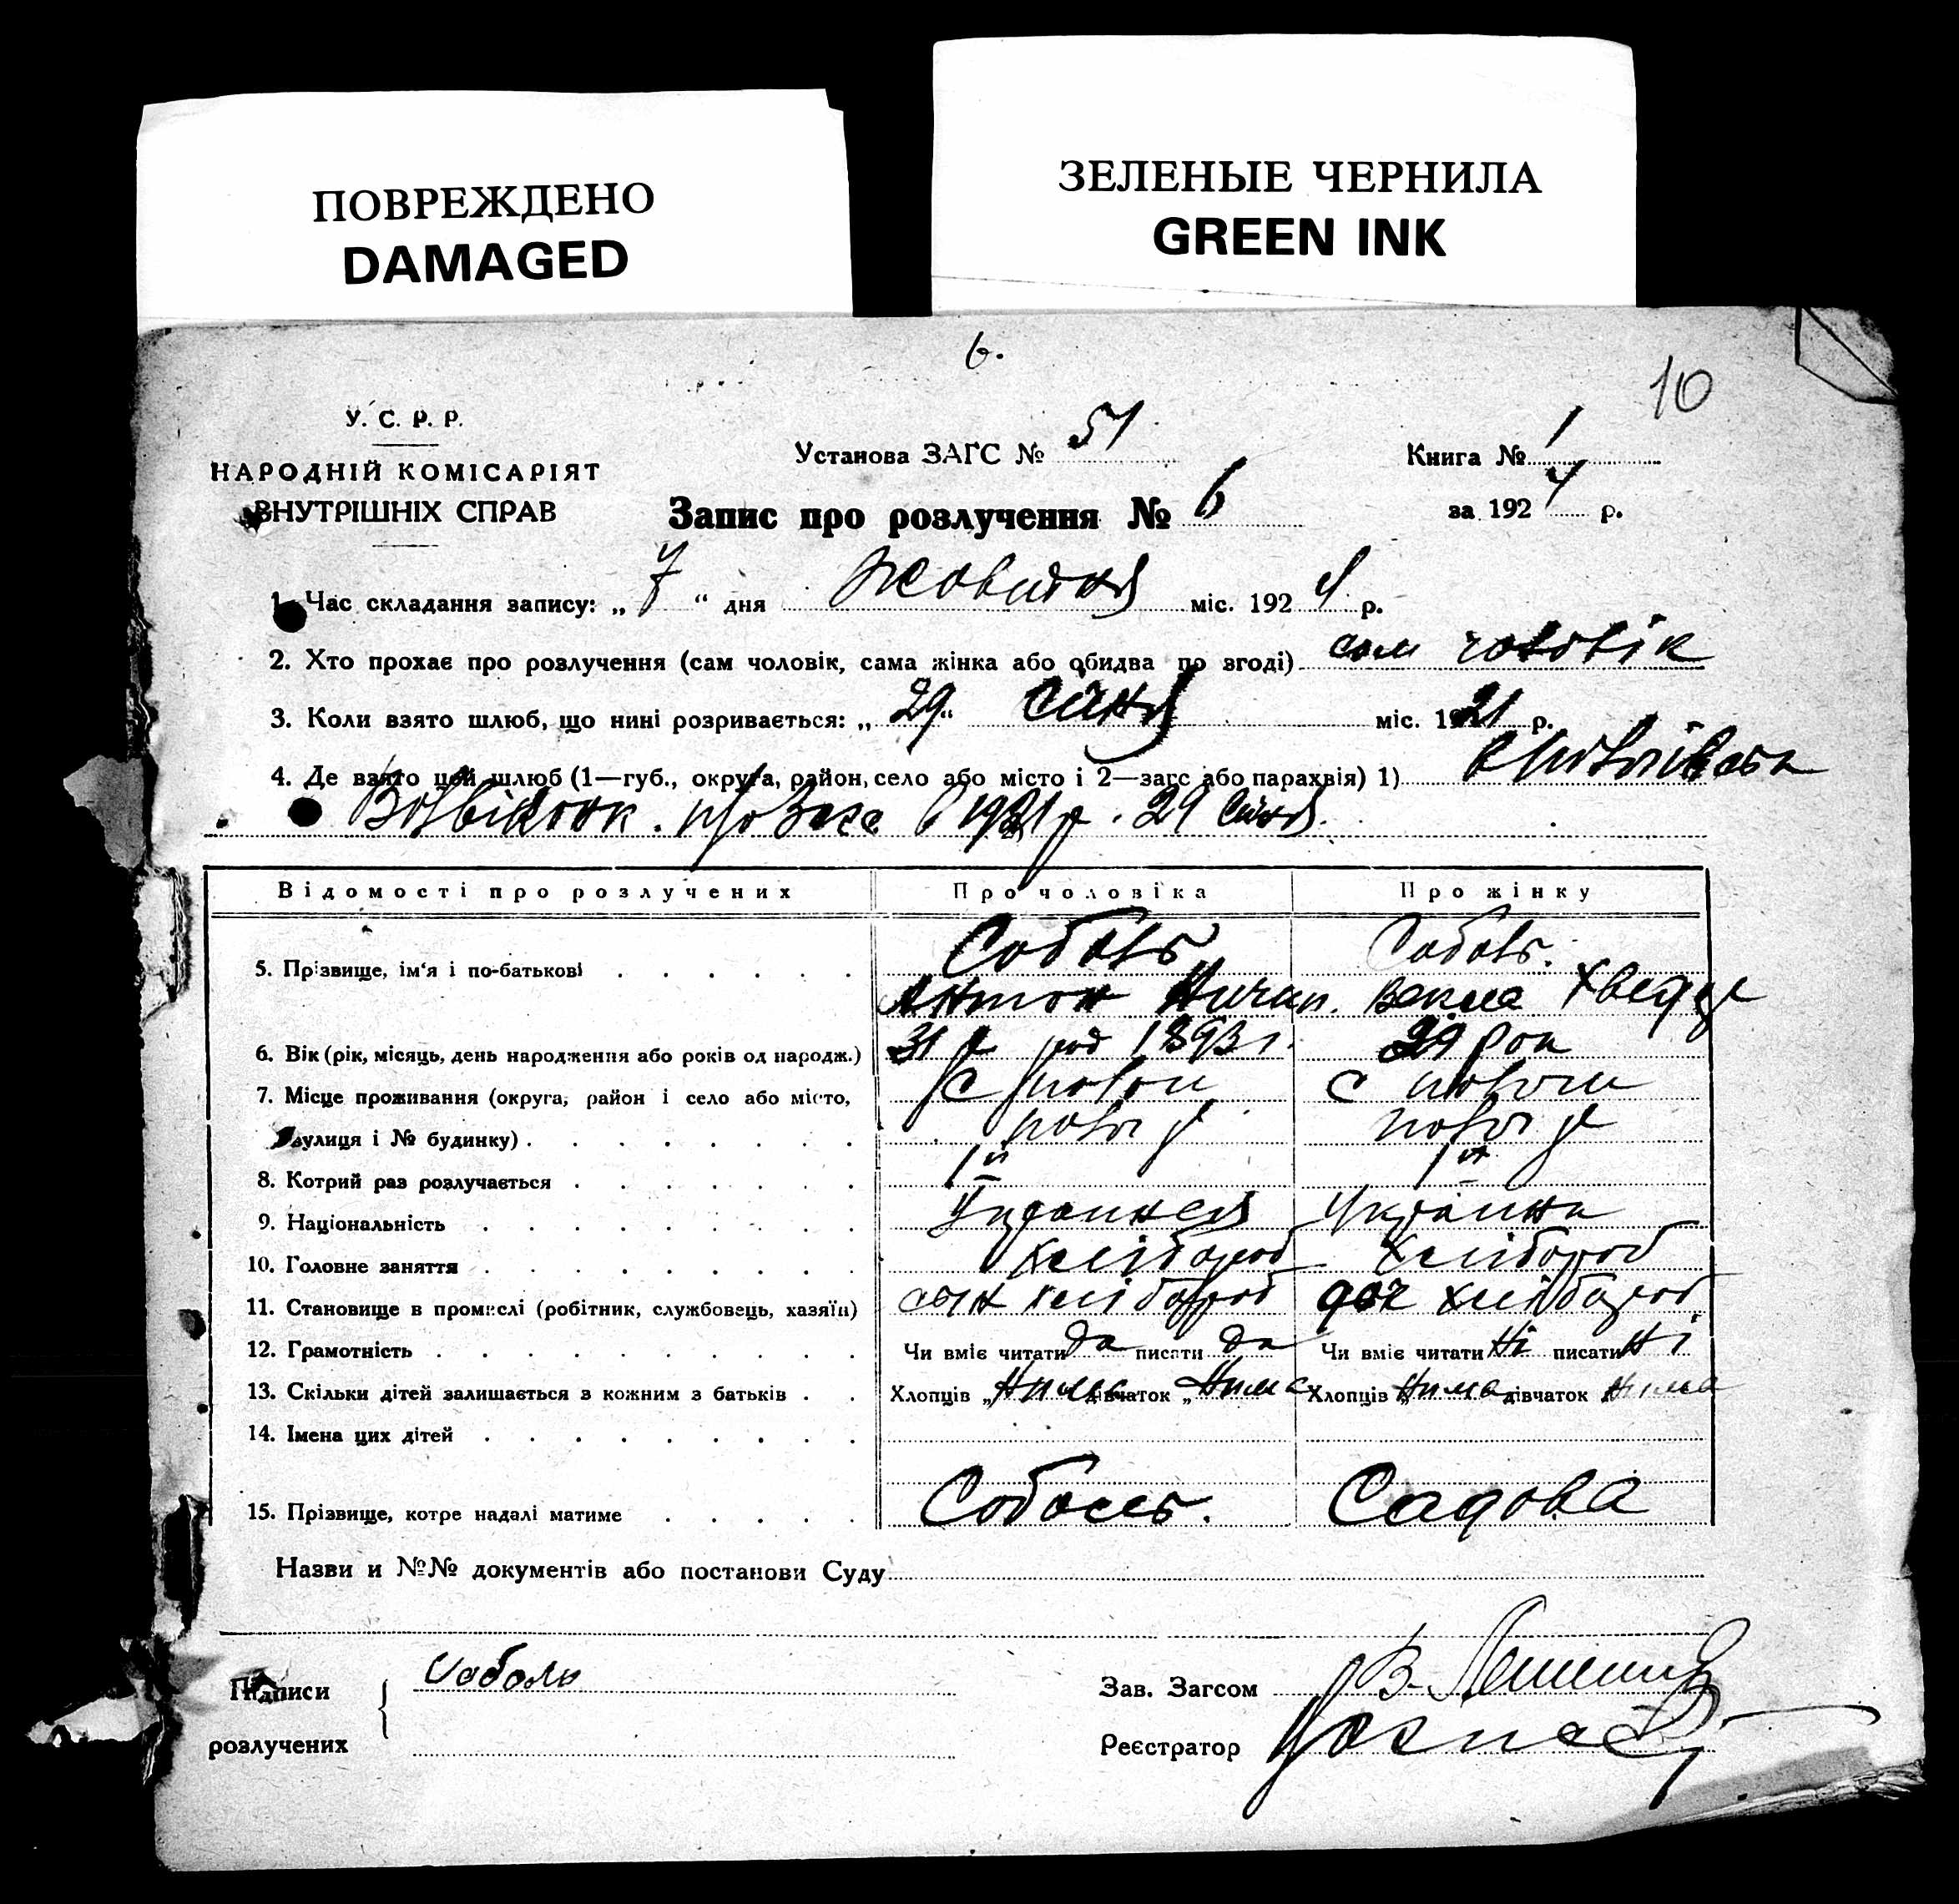 ПОВРЕЖДЕНО
DAMAGED
ЗЕЛЕНЫЕ ЧЕРНИЛА
GREEN INK
6.
10
У. С. Р. Р.
НАРОДНІЙ КОМІСАРІЯТ
ВНУТРІШНІХ СПРАВ
Установа ЗАГС № 51
Книга № 1
Запис про розлучення № 6
за 1924 р.
1. Час складання запису: „ 7 “ дня Жовтня міс. 1924 р.
2. Хто прохає про розлучення (сам чоловік, сама жінка або обидва по згоді) сам чоловік
3. Коли взято шлюб, що нині розривається: „ 29 “ Січня міс. 1921 р.
4. Де взято цей шлюб (1—губ., округа, район, село або місто і 2—загс або парахвія) 1)
1921 р. 29 Січня.
Відомості про розлучених Про чоловіка Про жінку
5. Прізвище, ім‘я і по-батькові . . . . . . Соболь Соболь.
Антон Ничип. Векла Хведор
6. Вік (рік, місяць, день народження або років од народж.) 31 р 1893 г. 29 рок
7. Місце проживання (округа, район і село або місто, с с
вулиця і № будинку) . . . . . . . . .
8. Котрий раз розлучається . . . . . . . 1й 1й
9. Національність . . . . . . . . . Українець Українка
10. Головне заняття . . . . . . . . . хлібороб хлібороб
11. Становище в промислі (робітник, службовець, хазяїн) сын хлібороб доч хлібороб
12. Грамотність . . . . . . . . . . Чи вміє читати да писати да Чи вміє читати Ні писати Ні
13. Скільки дітей залишається з кожним з батьків . . Хлопців „ Нима дівчаток „ Нима Хлопців „ Нима дівчаток „ Нима
14. Імена цих дітей . . . . . . . . .
15. Прізвище, котре надалі матиме . . . . . Соболь. Садова
Назви и №№ документів або постанови Суду
Підписи Соболь
розлучених
Зав. Загсом В.
Реєстратор